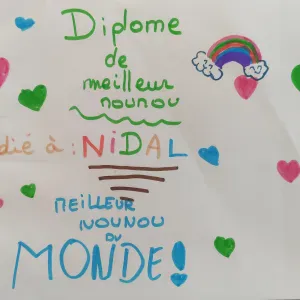 Diplome
de
meilleur
nounou
dié à : NiDAL
MEILLEUR
NOUNOU
DU
MONDE!